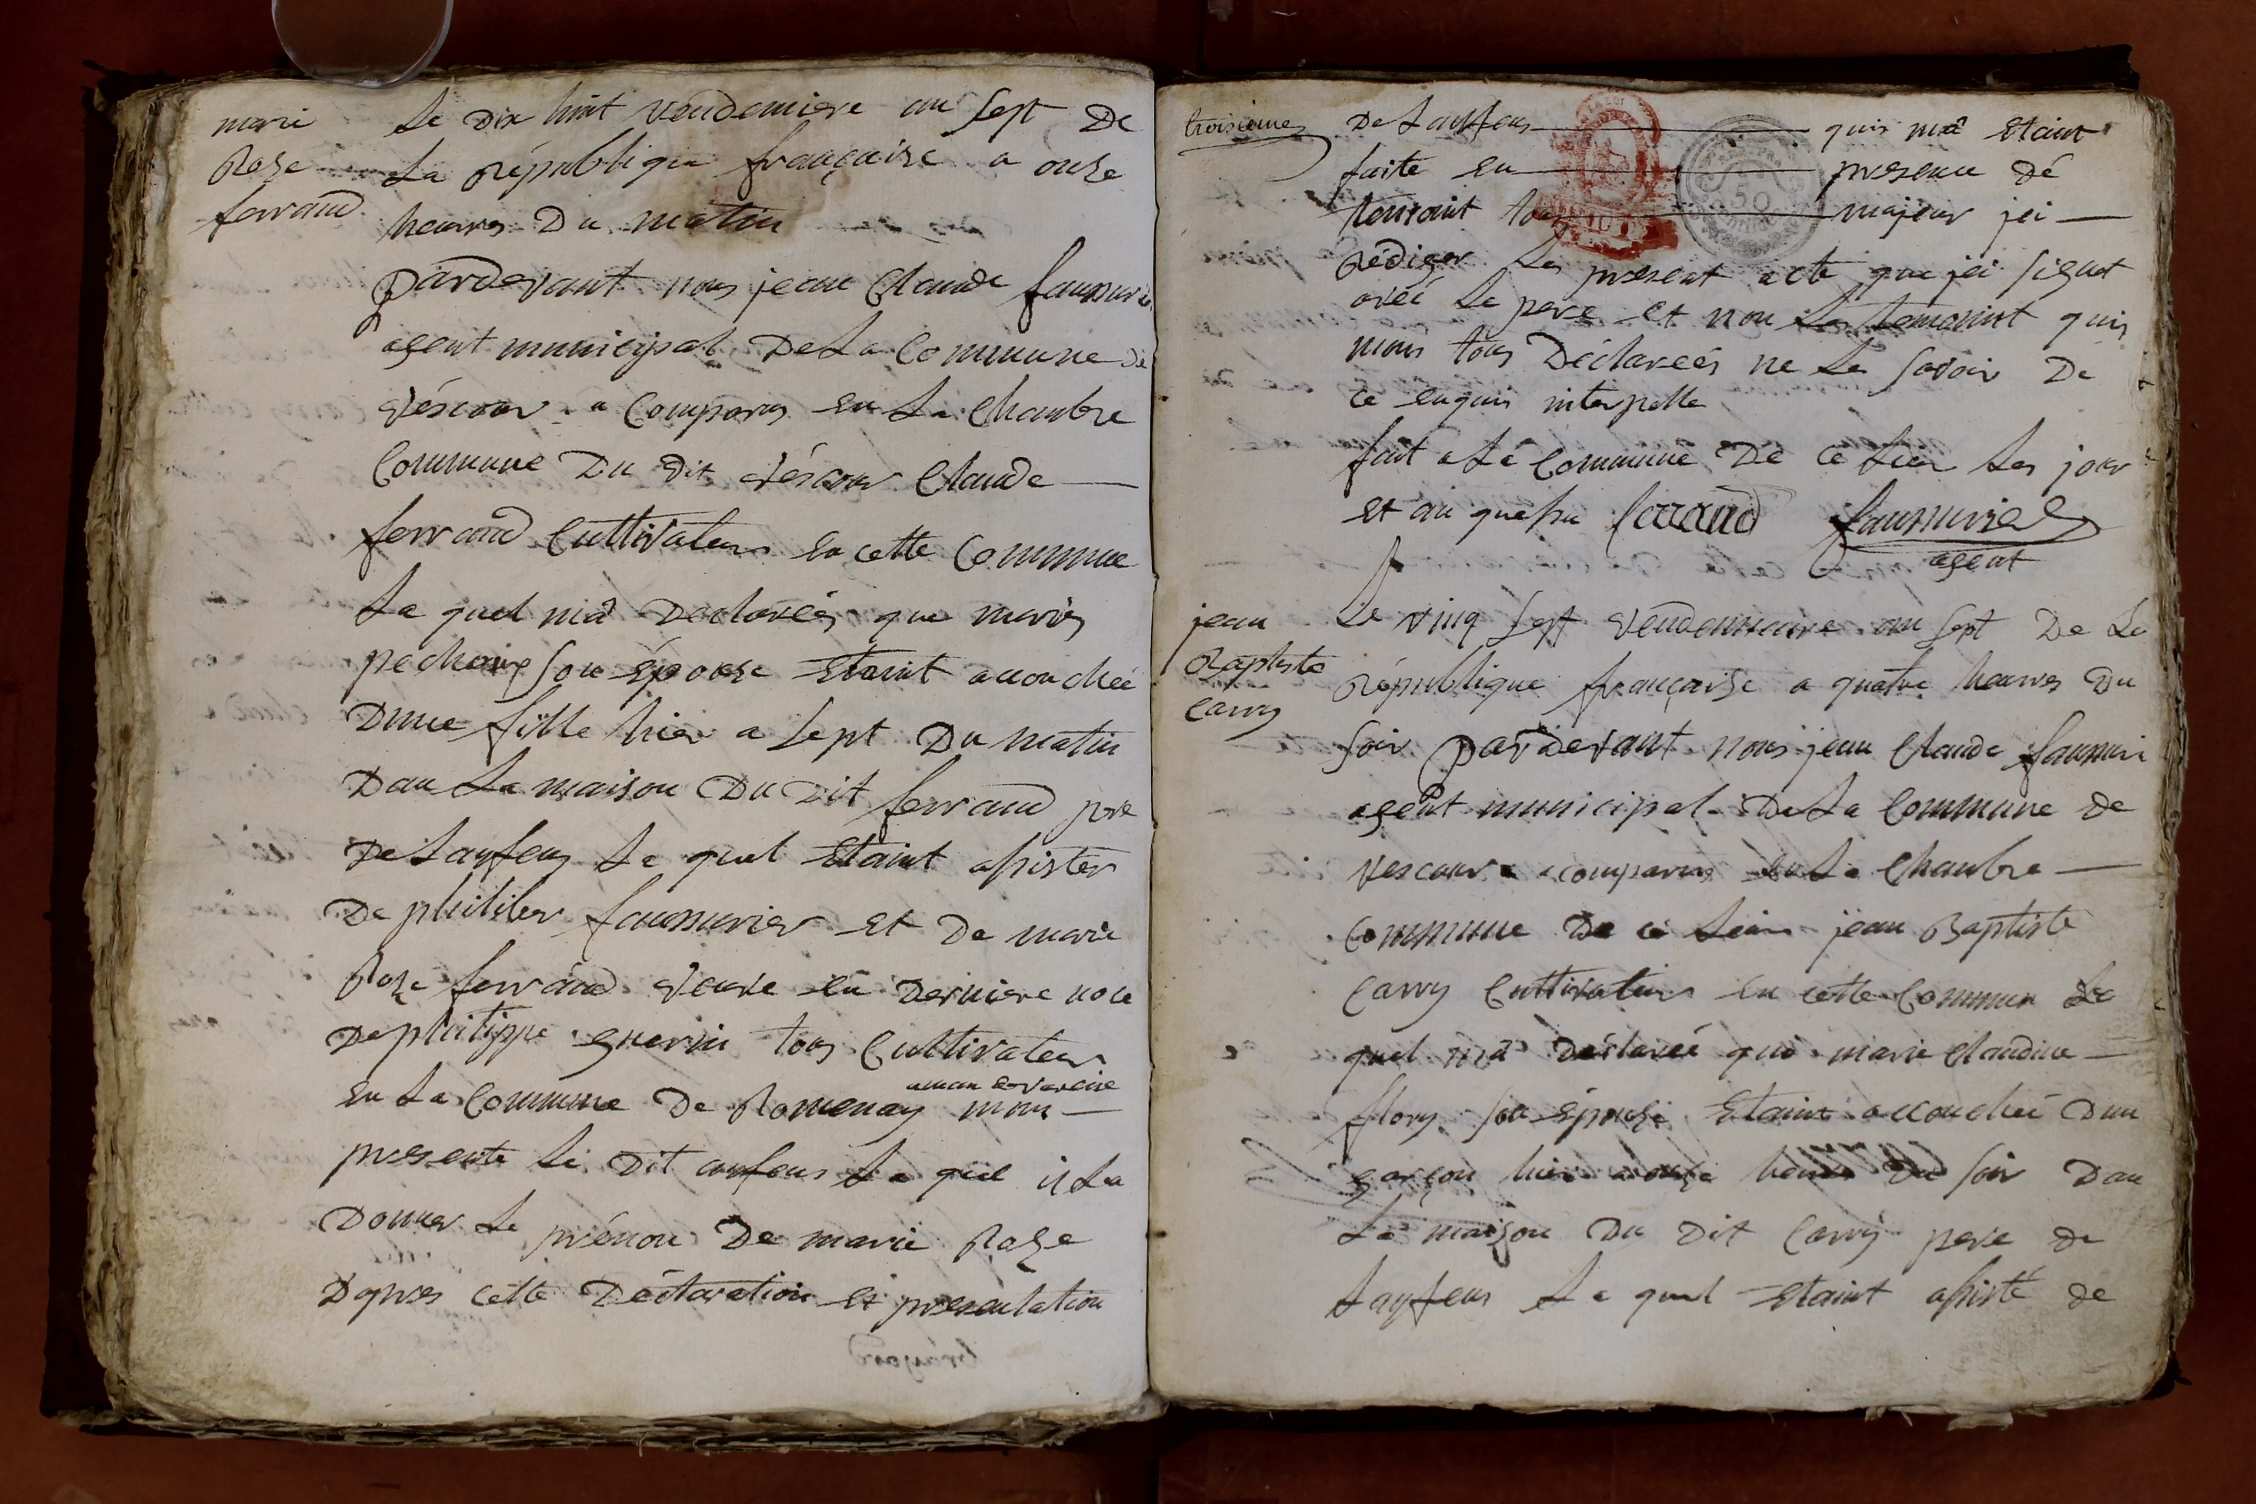 marie
Roze
ferrand
Le Dix huit vendemiere an sept De
La république française a onze
heures Du matin
pardevant nous jean Claude faussurie
agent municipal De La Commune De
véscour a Comparus en La Chambre
Commune Du dit véscour Claude
ferrand Cultivateur en cette Commune
Le quel m'â Declarées que marie
pechoux son épouse étaint accouchée
Dune fille hier a sept Du matin
Dan La maison Du Dit ferrand pere
De Lanfens Le quel étaint assister
De philiber faussurier et De marie
Roze ferrand veuve en Derniere noce
De philippe guerin tous Cultivateur
en La Commune De Romenay mon
presente Le Dit anfens Le quel il La
Donner Le prénon De marie Roze
Dapres cette Déclaration et presentation
troisieme
De Lanfens quis m'â étaint
faite en presence dé
temoint tous majeur jei
Rédiger Les present acte que jei signet
avéc Le pere et non Les temoint quis
mons tous Déclareés ne Le savoir De
ce enquis interpelle
fait a Lé Commune De ce Lieu Les jour
et an que su ferrand faussurier
agent
jean
Baptiste
Carry
Le vinq sept vendemieaire an sept De La
république française a quatre heures Du
soir pardevant nous jean Claude faussuri
agent municipal De La Commune de
vescour a comparus en La Chambre
Commune De ce Lieu jean Baptiste
Carry Cultivateur en cette Commun Le
quel m'â déclareé que marie Claudine
flory son épouze étaint accouchée Dun
garçon hier a onze heures Du soir Dan
La maison Du Dit Carry pere de
Lanfens Le quel étaint assisté de